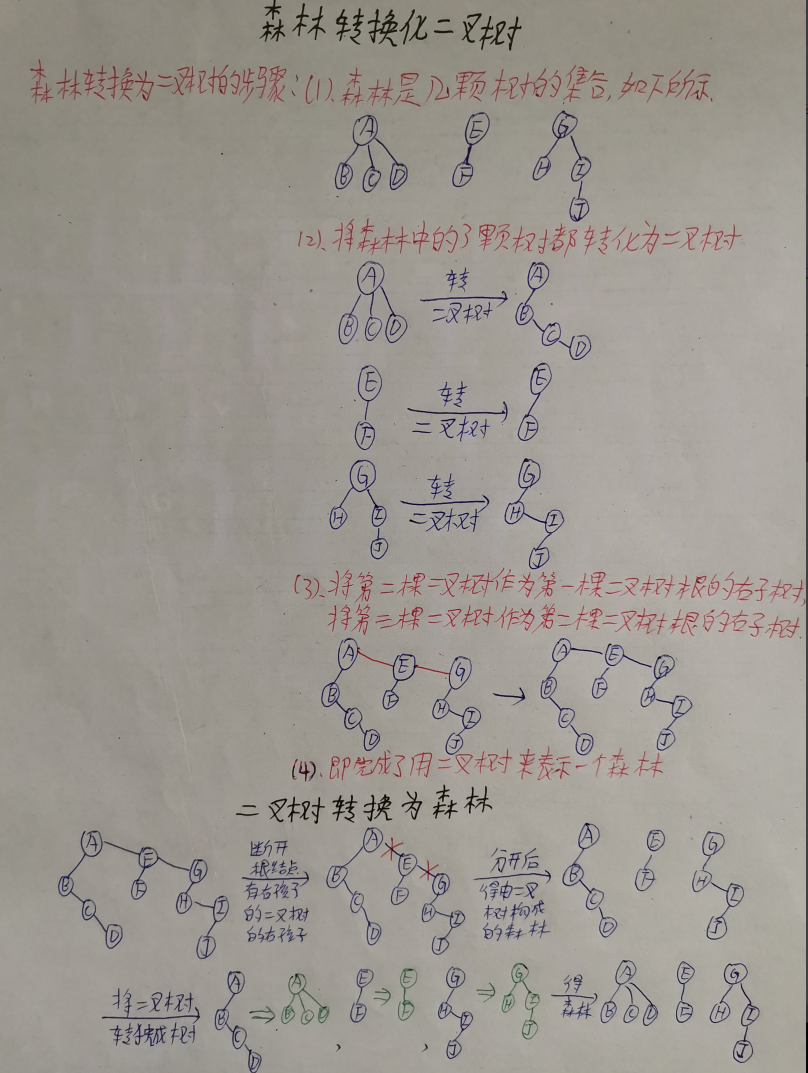 森林转换化二叉树
森林转换为二叉树的步骤:(1).森林是几颗树的集合,如下所示.
A E G
B C D F H I
J
(2).将森林中的3颗树都转化为二叉树
A 转 A
B C D 二叉树 B
C D
E 转 E
F 二叉树 F
G 转 G
H I 二叉树 H I
J J
(3).将第二棵二叉树作为第一棵二叉树根的右子树,
将第三棵二叉树作为第二棵二叉树根的右子树.
A E G A E G
B F H I B F H I
C D J C D J
(4).即完成了用二叉树来表示一个森林
二叉树转换为森林
A E G 断开 A E G 分开后 A E G
B F H I 根结点 B F H I 得由二叉 B F H I
C D J 有右孩子 C D J 树构成 C D J
的二叉树 的森林
的右孩子
将二叉树 A A E E G G 得 A E G
转换成树 B B C D F F H I H I 森林 B C D F H I
C D , , J J J